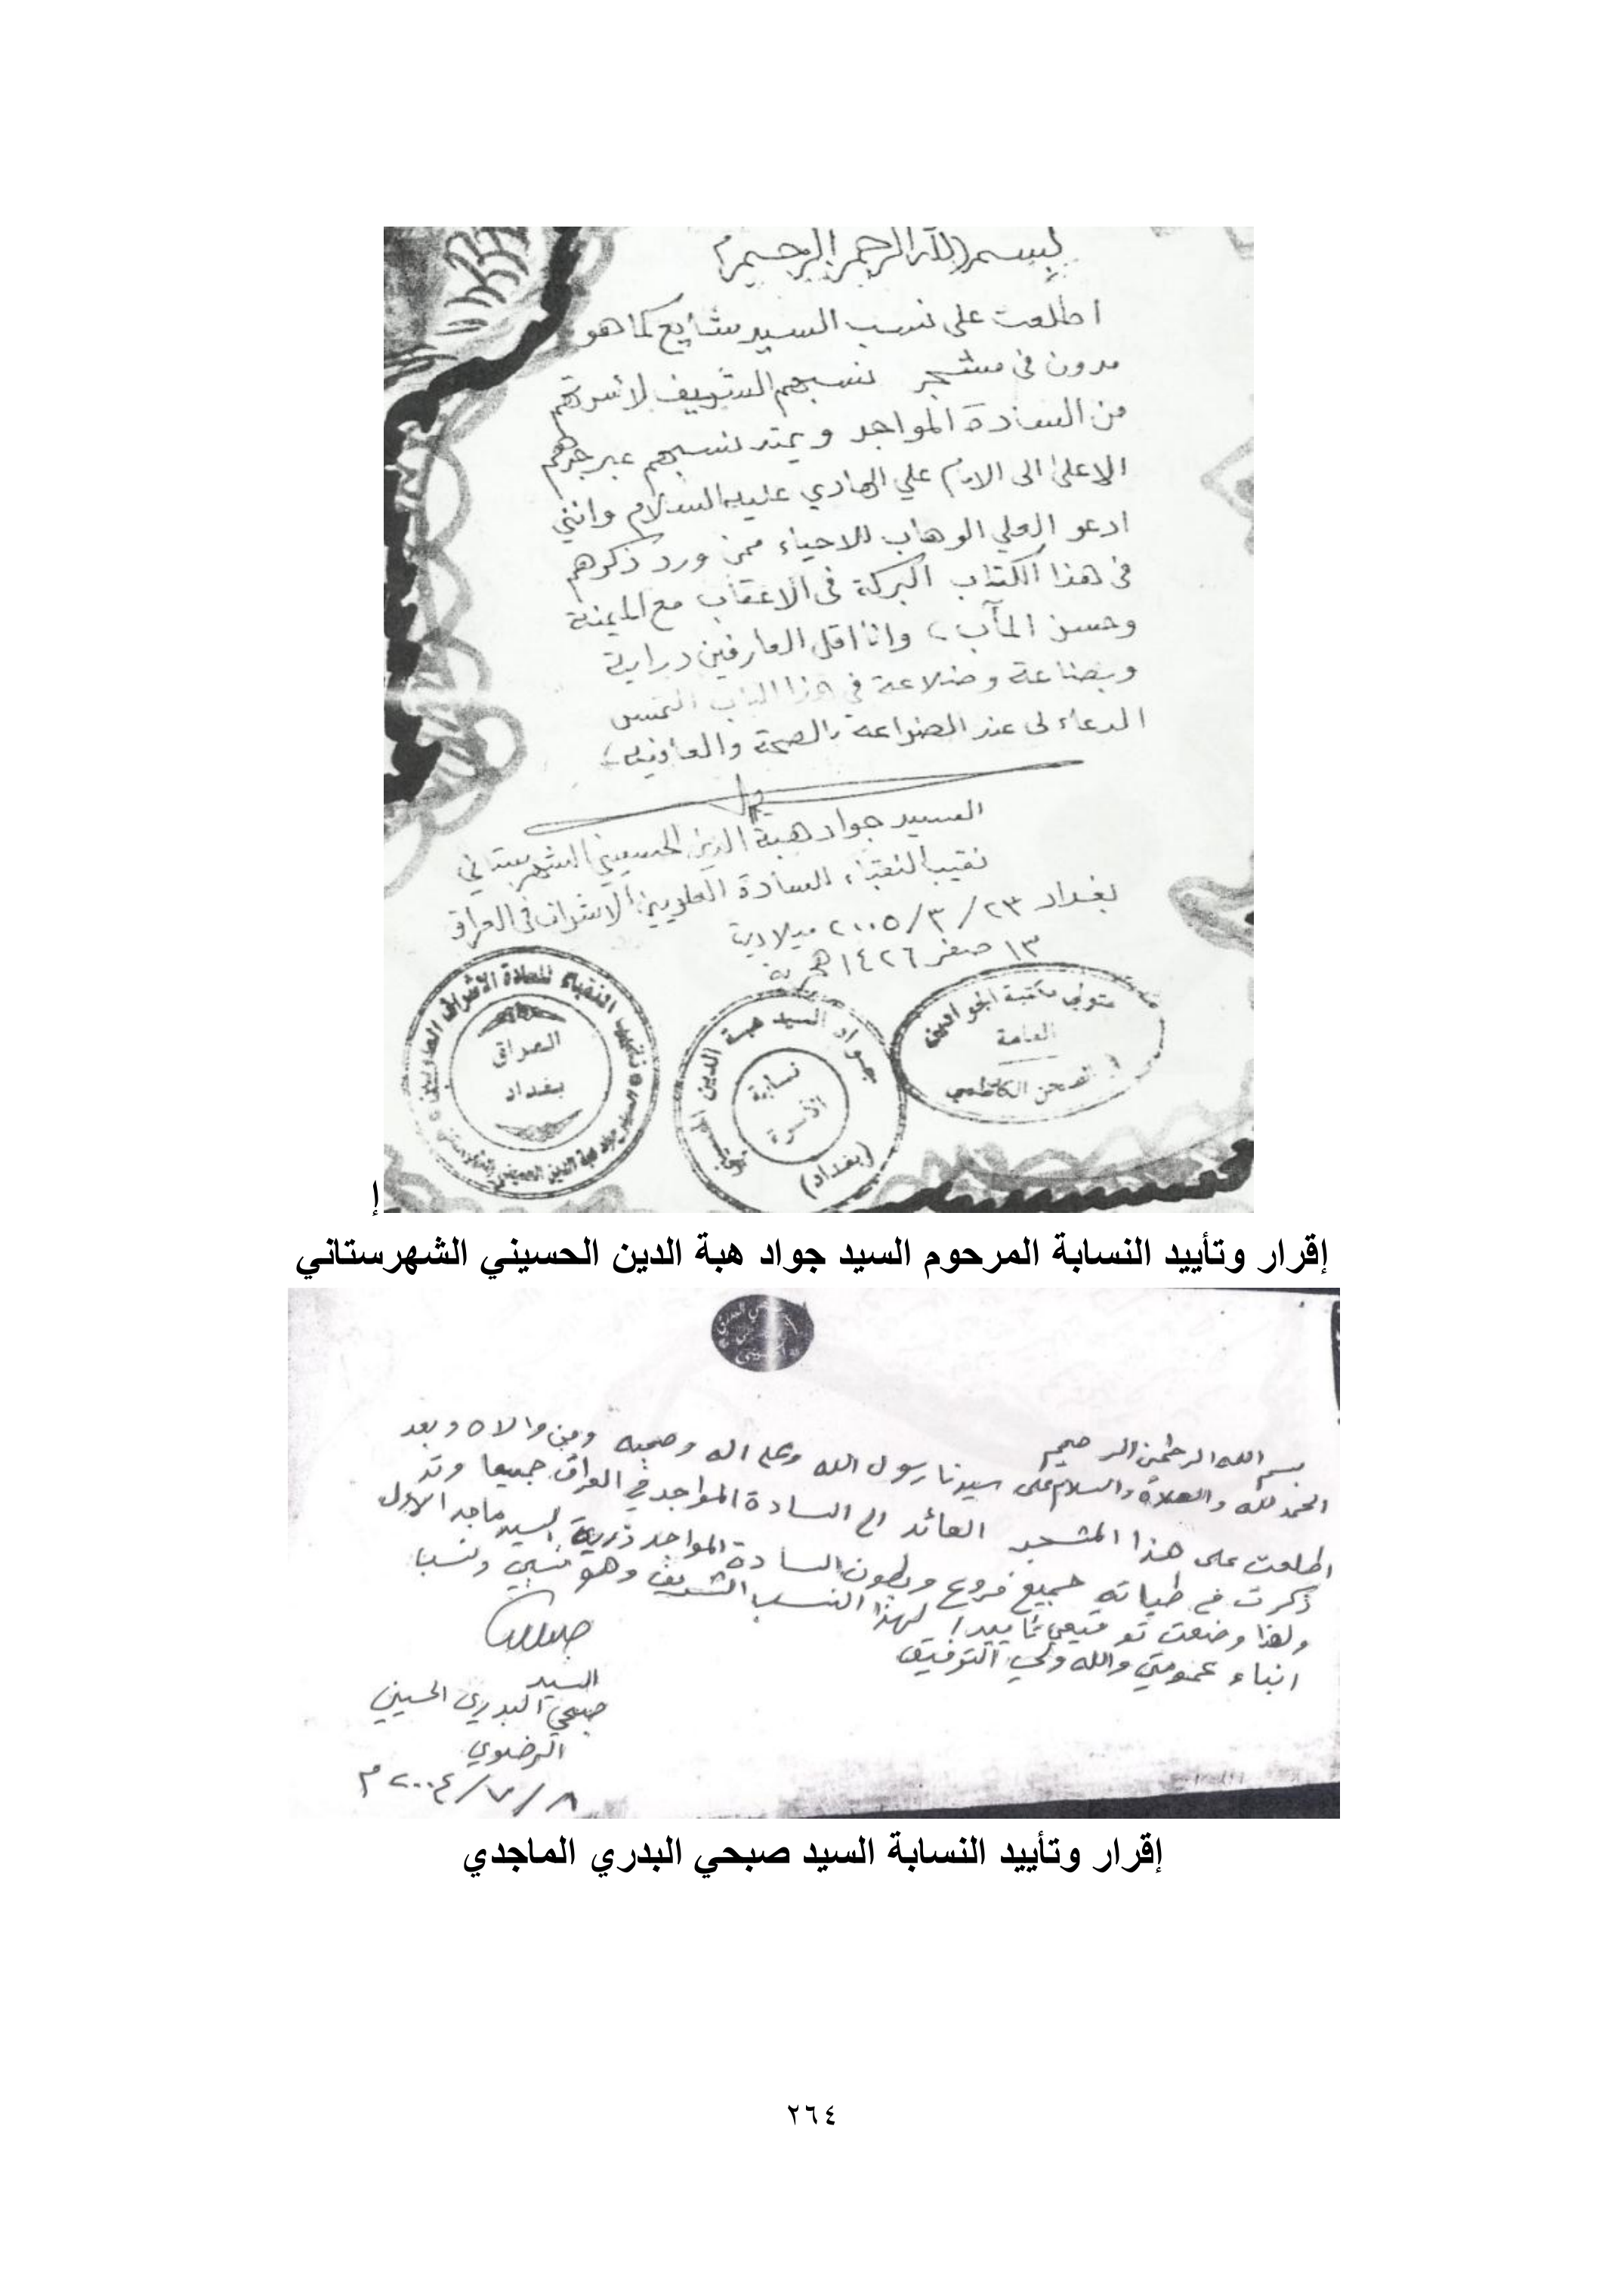 بسم الله الرحمن الرحيم
اطلعت على نسب السيد شايع كما هو
مدون في مشجر نسبهم الشريف لأسرتهم
من السادة المواجد ويمتد نسبهم عبر جدهم
الاعلى الى الامام علي الهادي عليه السلام وانني
ادعو العلي الوهاب للاحياء ممن ورد ذكرهم
في هذا الكتاب البركة في الاعقاب مع الميمنة
وحسن المآب، وانا اقل العارفين دراية
وبضاعة وضلاعة في هذا الباب التمس
الدعاء لي عند الضراعة بالصحة والعافية
السيد جواد هبة الدين الحسيني الشهرستاني
نقيب النقباء للسادة العلويين الاشراف في العراق
بغداد ٢٣/٣/٢٠٠٥ ميلادية
١٣ صفر ١٤٢٦ هجرية
نقيب النقباء للسادة الاشراف العلويين
السيد جواد هبة الدين الحسيني الشهرستاني
العراق
بغداد
جواد السيد هبة الدين الحسيني
نسابة
الأسرة
(بغداد)
متولي مكتبة الجوادين
العامة
الصحن الكاظمي
إ
إقرار وتأييد النسابة المرحوم السيد جواد هبة الدين الحسيني الشهرستاني
بسم الله الرحمن الرحيم
الحمد لله والصلاة والسلام على سيدنا رسول الله وعلى اله وصحبه ومن والاه وبعد
اطلعت على هذا المشجر العائد الى السادة المواجد في العراق جميعا وقد
ذكرت في طياته جميع فروع وبطون السادة المواجد ذرية السيد ماجد الاول
ولهذا وضعت توقيعي تأييدا لهذا النسب الشريف وهو نسبي ونسب
ابناء عمومتي والله ولي التوفيق
السيد
صبحي البدري الحسيني
الرضوي
٨/٧/٢٠٠٤ م
إقرار وتأييد النسابة السيد صبحي البدري الماجدي
٢٦٤